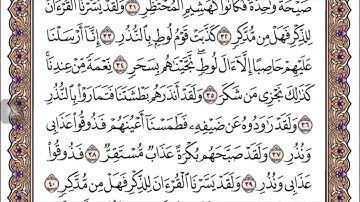 صَيْحَةً وَٰحِدَةً فَكَانُوا۟ كَهَشِيمِ ٱلْمُحْتَظِرِ ٣١ وَلَقَدْ يَسَّرْنَا ٱلْقُرْءَانَ
لِلذِّكْرِ فَهَلْ مِن مُّدَّكِرٍ ٣٢ كَذَّبَتْ قَوْمُ لُوطٍۭ بِٱلنُّذُرِ ٣٣ إِنَّآ أَرْسَلْنَا
عَلَيْهِمْ حَاصِبًا إِلَّآ ءَالَ لُوطٍ ۖ نَّجَّيْنَٰهُم بِسَحَرٍ ٣٤ نِّعْمَةً مِّنْ عِندِنَا ۚ
كَذَٰلِكَ نَجْزِى مَن شَكَرَ ٣٥ وَلَقَدْ أَنذَرَهُم بَطْشَتَنَا فَتَمَارَوْا۟ بِٱلنُّذُرِ
٣٦ وَلَقَدْ رَٰوَدُوهُ عَن ضَيْفِهِۦ فَطَمَسْنَآ أَعْيُنَهُمْ فَذُوقُوا۟ عَذَابِى
وَنُذُرِ ٣٧ وَلَقَدْ صَبَّحَهُم بُكْرَةً عَذَابٌ مُّسْتَقِرٌّ ٣٨ فَذُوقُوا۟
عَذَابِى وَنُذُرِ ٣٩ وَلَقَدْ يَسَّرْنَا ٱلْقُرْءَانَ لِلذِّكْرِ فَهَلْ مِن مُّدَّكِرٍ ٤٠